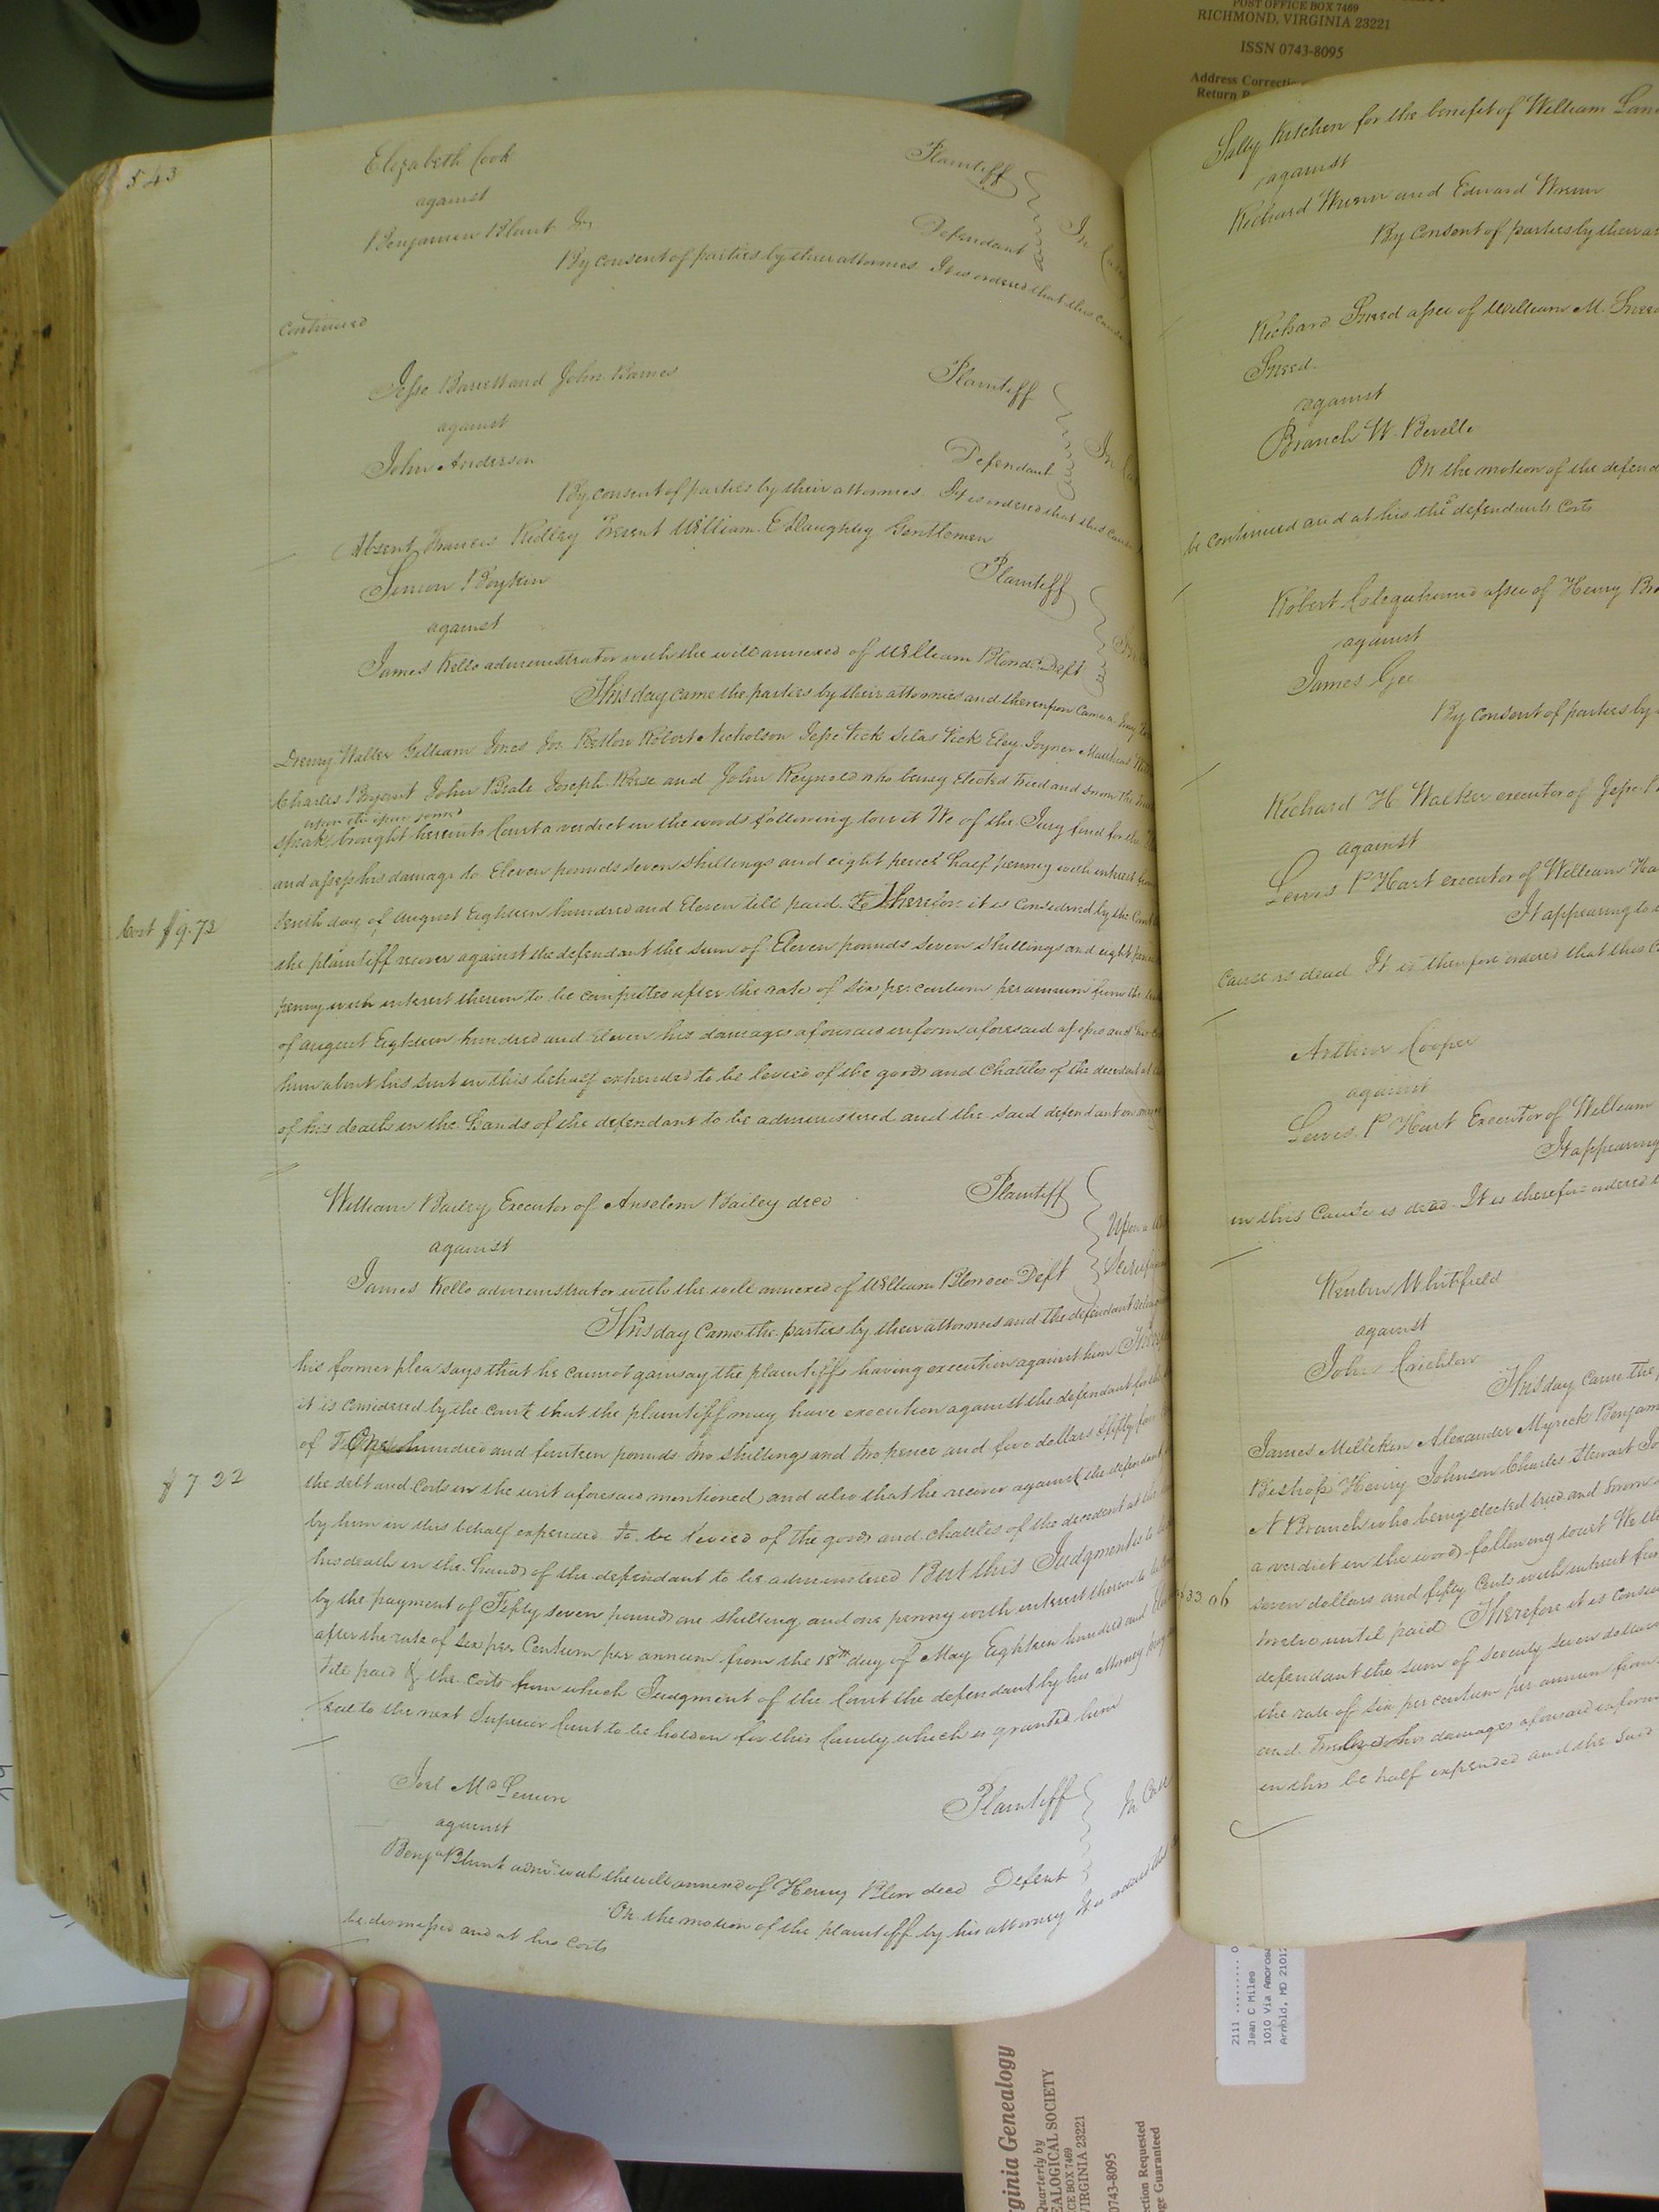 543
Elizabeth Cook Plaintiff
against In
Benjamin Blunt Jr Defendant
By consent of parties by their attornies It is ordered that this cause
continued
Jesse Barrett and John Barnes Plaintiff
against In
John Anderson Defendant
By consent of parties by their attornies. It is ordered that this cause
Absent Francis Ridley Present William. E Vaughan Gentlemen
Simon Boykin Plaintiff
against
James Kello administrator with the will annexed of William Blow decd Deft
This day came the parties by their attornies and thereupon came a Jury
Drewry Walter Gilliam Jones Jno. Barlow Robert Nicholson Jesse Vick Silas Vick Eley Joyner Matthew
Charles Bryant John Beale Joseph and John Reynolds who being elected tried and sworn the truth
upon the issue joined
speak brought herein to Court a verdict in the words following towit We of the Jury find for the
and assess his damage to Eleven pounds seven shillings and eight pence half penny with interest from
tenth day of August Eighteen hundred and Eleven till paid Therefore it is considered by the Court
Cost $9.73
the plaintiff recover against the defendant the sum of Eleven pounds seven shillings and eight pence
penny with interest thereon to be computed after the rate of six per centum per annum from the
of August Eighteen hundred and Eleven his damages aforesaid in form aforesaid assessed and
him about his suit in this behalf expended to be levied of the goods and chattles of the decedent at
of his death in the hands of the defendant to be administered and the said defendant in mercy
William Bailey Executor of Anselem Bailey decd Plaintiff
against Upon a
James Kello administrator with the will annexed of William Blow decd Deft
This day came the parties by their attornies and the defendant
his former plea says that he cannot gainsay the plaintiffs having execution against him
it is considered by the court that the plaintiff may have execution against the defendant for the
of One hundred and fourteen pounds two shillings and two pence and five dollars & fifty four
$7 22
the debt and costs in the writ aforesaid mentioned and also that he recover against the defendant
by him in this behalf expended to be levied of the goods and chattles of the decedent at the
his death in the hands of the defendant to be administered But this Judgment is to be
by the payment of Fifty seven pounds one shilling and one penny with interest thereon to be
after the rate of six per Centum per annum from the 18th day of May Eighteen hundred and
till paid & the costs from which Judgment of the Court the defendant by his attorney
to the next Superior Court to be holden for this County which is granted him
Joel McLemore Plaintiff
against In
Benja Blunt admr with the will annexed of Henry Blow decd Defent
On the motion of the plaintiff by his attorney It is ordered that
be dismissed and at his costs
Sally Kitchen for the benefit of William
against
Richard Wrenn and Edward Wrenn
By Consent of parties by their
Richard Sneed assee of William M. Sneed
Sneed.
against
Branch W. Bevelle
On the motion of the defend
be continued and at his the defendants costs
Robert Colequhound assee of Henry
against
James Gee
By consent of parties by
Richard H. Walker executor of Jesse
against
Lewis P Hart executor of William
It appearing to
cause is dead. It is therefore ordered that this
Arthur Cooper
against
Lewis. P Hart Executor of William
It appearing
in this Cause is dead. It is therefore ordered
Reuben Whitfield
against
John Crichlow
This day came the
James Milliken Alexander Myrick Benjam
Bishop Henry Johnson Charles Stewart
N Branch who being elected tried and sworn
a verdict in the words following towit We the
33 06
seven dollars and fifty Cents with interest from
twelve until paid Therefore it is consi
defendant the sum of Seventy seven dollars
the rate of six per centum per annum from
and. Twelve his damages aforesaid in form
in this be half expended and the said
POST OFFICE BOX 7469
RICHMOND, VIRGINIA 23221
ISSN 0743-8095
Address Correction
Return
2111
Jean C Miles
1010 Via Amorosa
Arnold, MD 21012
ginia Genealogy
Quarterly by
EALOGICAL SOCIETY
CE BOX 7469
VIRGINIA 23221
0743-8095
ction Requested
ge Guaranteed